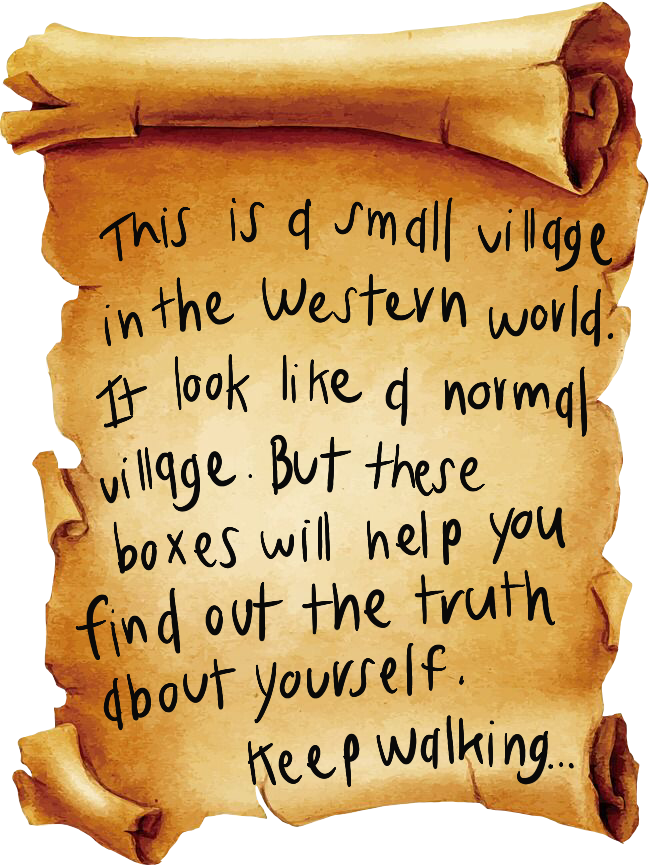 This is a small village
in the Western world.
It look like a normal
village. But these
boxes will help you
find out the truth
about yourself.
Keep walking...